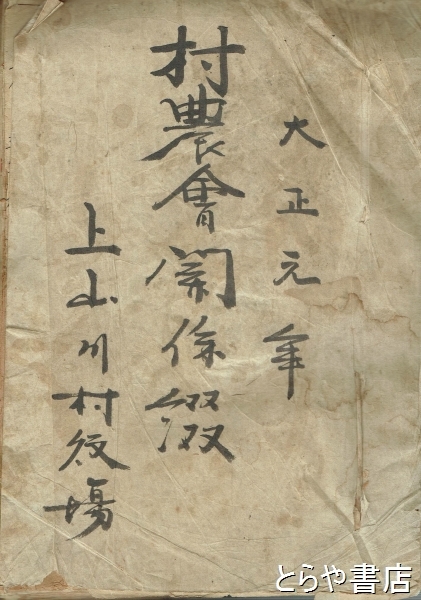 大正元年
村農會関係綴
上山川村役場
とらや書店